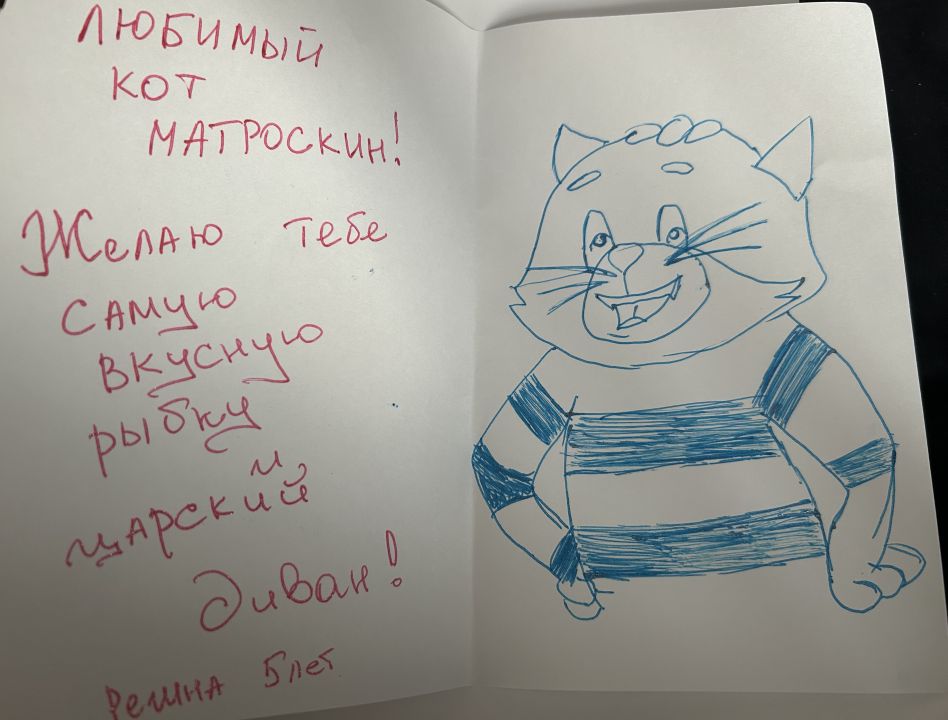 ЛЮБИМЫЙ
КОТ
МАТРОСКИН!
Желаю тебе
самую
вкусную
рыбку
и
царский
диван!
5 лет